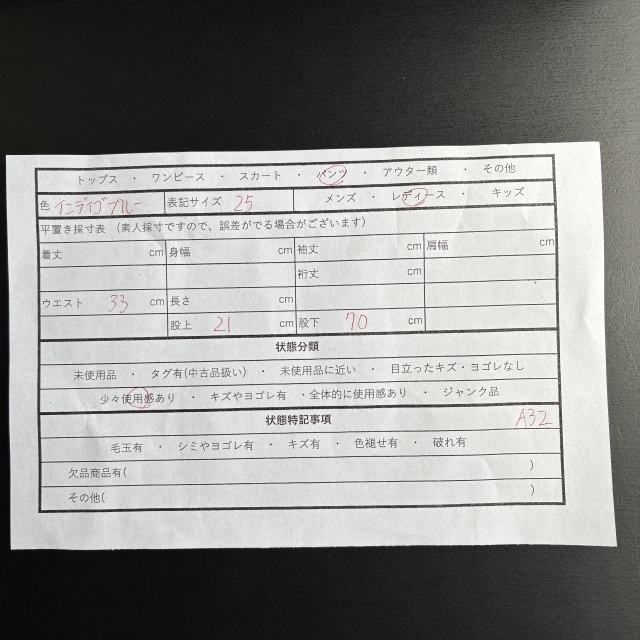 トップス ・ ワンピース ・ スカート ・ パンツ ・ アウター類 ・ その他
色 インディゴブルー 表記サイズ 25 メンズ ・ レディース ・ キッズ
平置き採寸表 (素人採寸ですので、誤差がでる場合がございます)
着丈 cm 身幅 cm 袖丈 cm 肩幅 cm
裄丈 cm
ウエスト 33 cm 長さ cm
股上 21 cm 股下 70 cm
状態分類
未使用品 ・ タグ有(中古品扱い) ・ 未使用品に近い ・ 目立ったキズ・ヨゴレなし
少々使用感あり ・ キズやヨゴレ有 ・全体的に使用感あり ・ ジャンク品
状態特記事項 A32
毛玉有 ・ シミやヨゴレ有 ・ キズ有 ・ 色褪せ有 ・ 破れ有
欠品商品有( )
その他( )